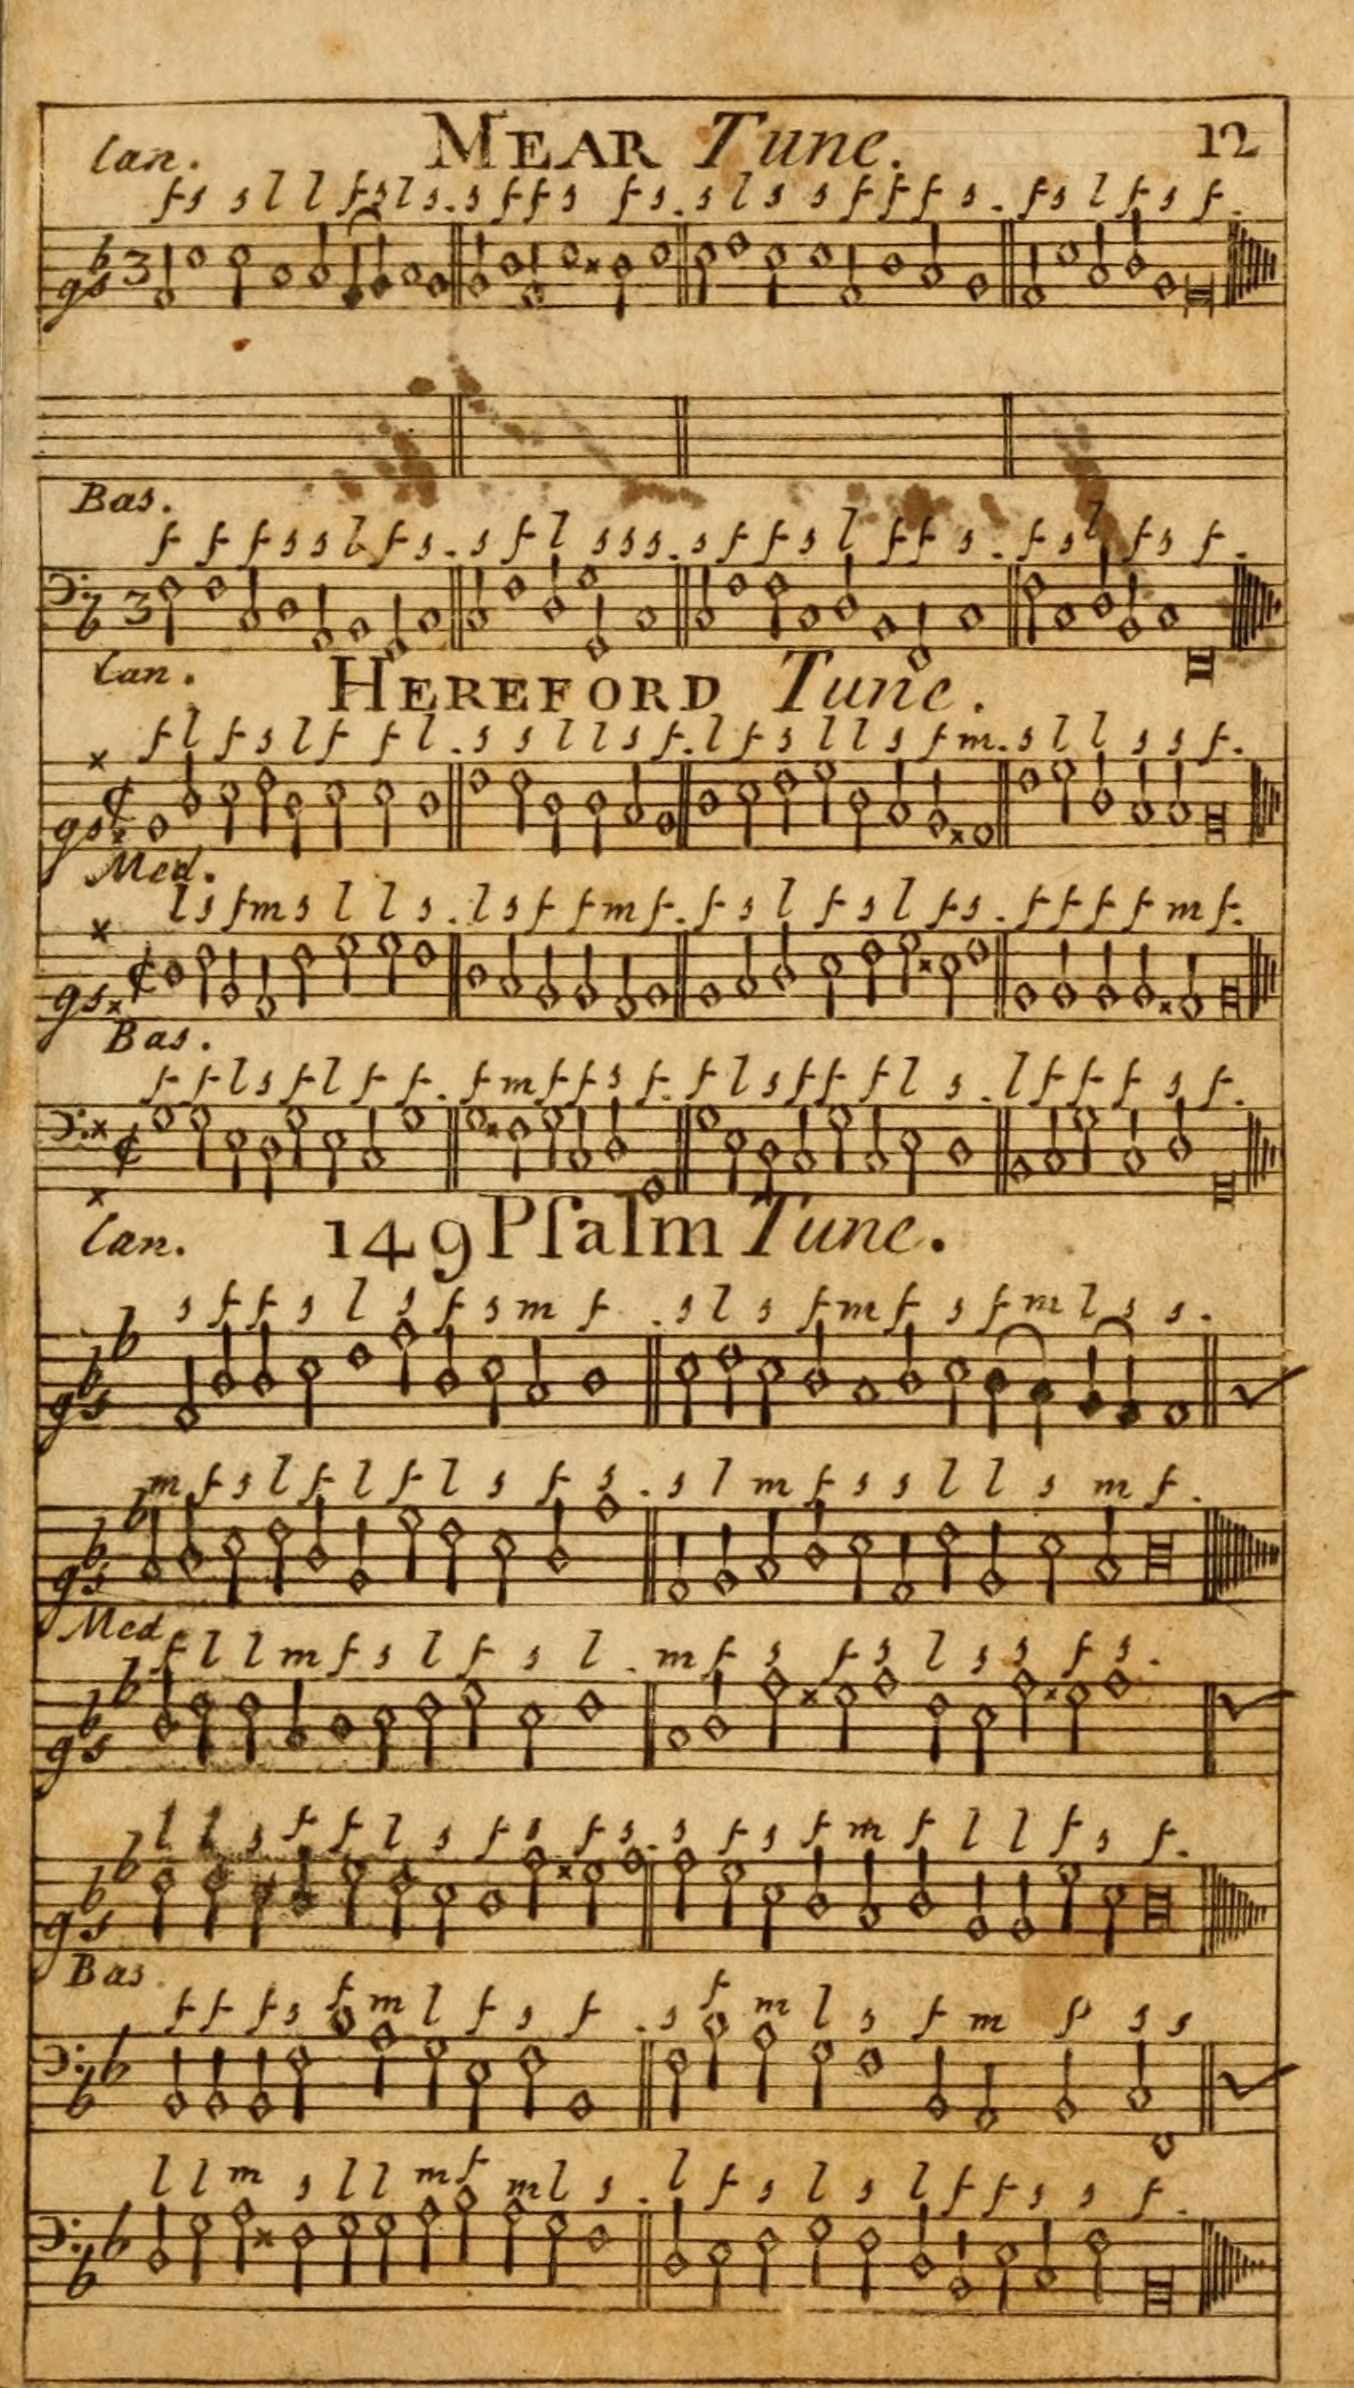 Can. MEAR Tune. 12
f s s l l f s l s . s f f s f s . s l s s f f f s . f s l f s f .
b 3
gs
Bas.
f f f s s l f s . s f l s s s . s f f s l f f s . f s l f s f .
b 3
Can. HEREFORD Tune.
f l f s l f f l . s s l l s f . l f s l l s f m . s l l s s f .
gs
Med.
l s f m s l l s . l s f f m f . f s l f s l f s . f f f f m f .
gs
Bas.
f f l s f l f f . f m f f s f . f l s f f f l s . l f f f s f .
Can. 149 Pſalm Tune.
s f f s l s f s m f . s l s f m f s f m l s s .
b b
gs
m f s l f l f l s f s . s l m f s s l l s m f .
b b
gs
Med
f l l m f s l f s l . m f s f s l s s f s .
b b
gs
l l s f f l s f s f s . s f s f m f l l f s f .
b b
gs
Bas.
f f f s f m l f s f . s f m l s f m f s s
b b
l l m s l l m f m l s . l f s l s l f f s s f .
b b